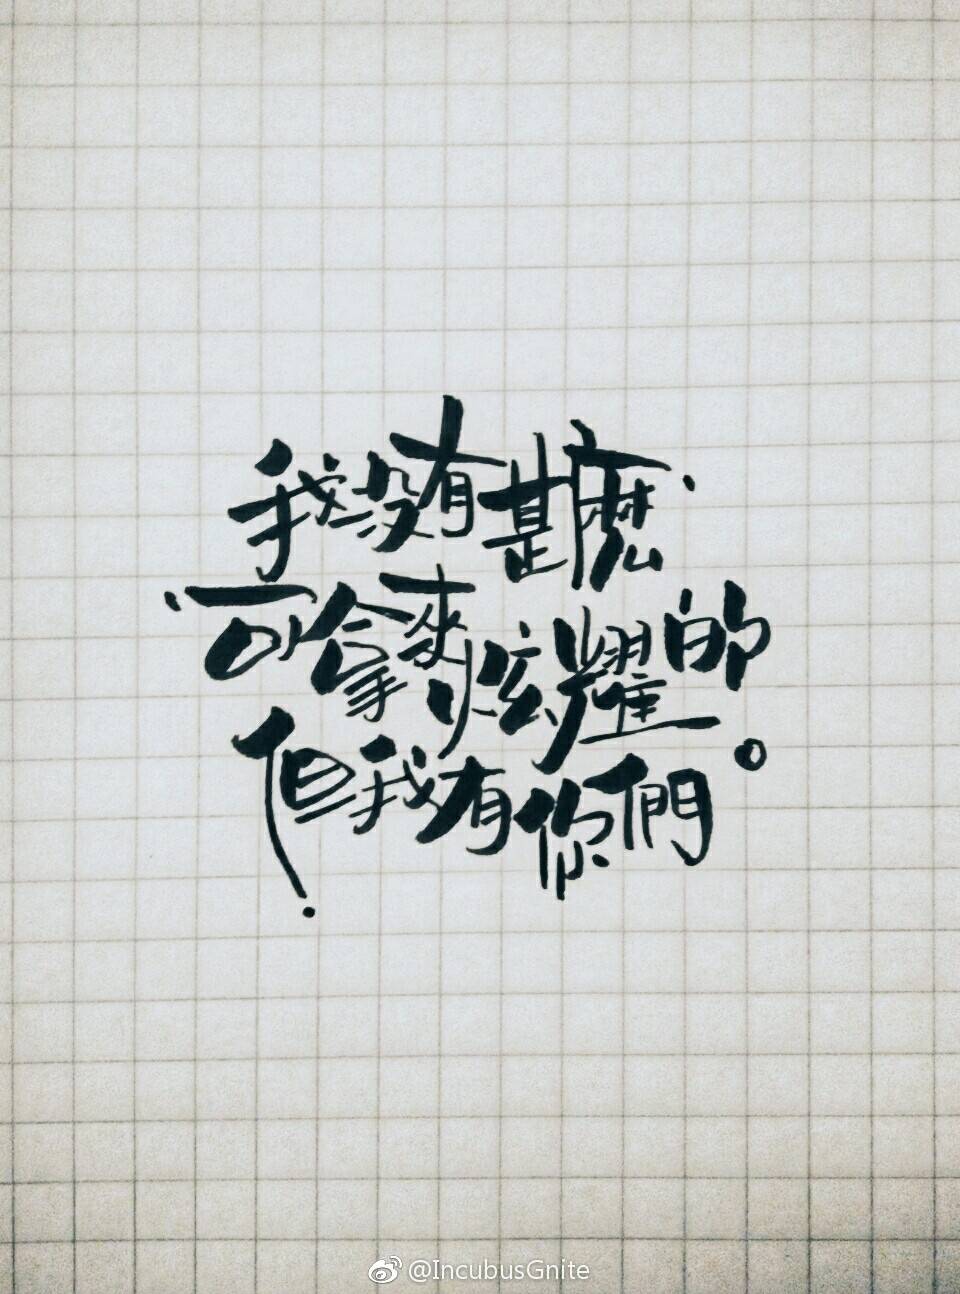 我没有甚麽
可拿來炫耀的
但我有你們。
@IncubusGnite